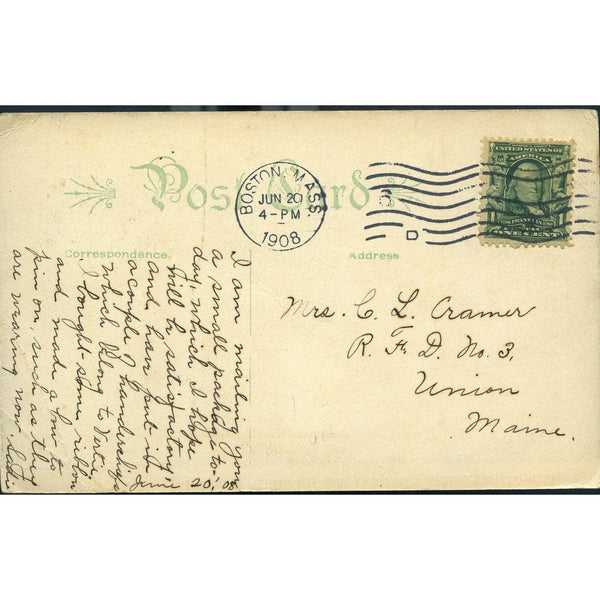 Post Card
Correspondence.
Address.
BOSTON, MASS.
JUN 20
4-PM
1908
D
SERIES 1902
UNITED STATES OF
AMERICA
FRANKLIN
ONE CENT
I am mailing you
a small package to-
day, which I hope
will be satisfactory
and have put in
a couple of handkerchiefs
which belong to Vertie,
I bought some ribbon
and made a bow to
pin on, such as they
are wearing now.
June 20, '08
Mrs. C. L. Cramer
R. F. D. No. 3,
Union,
Maine.